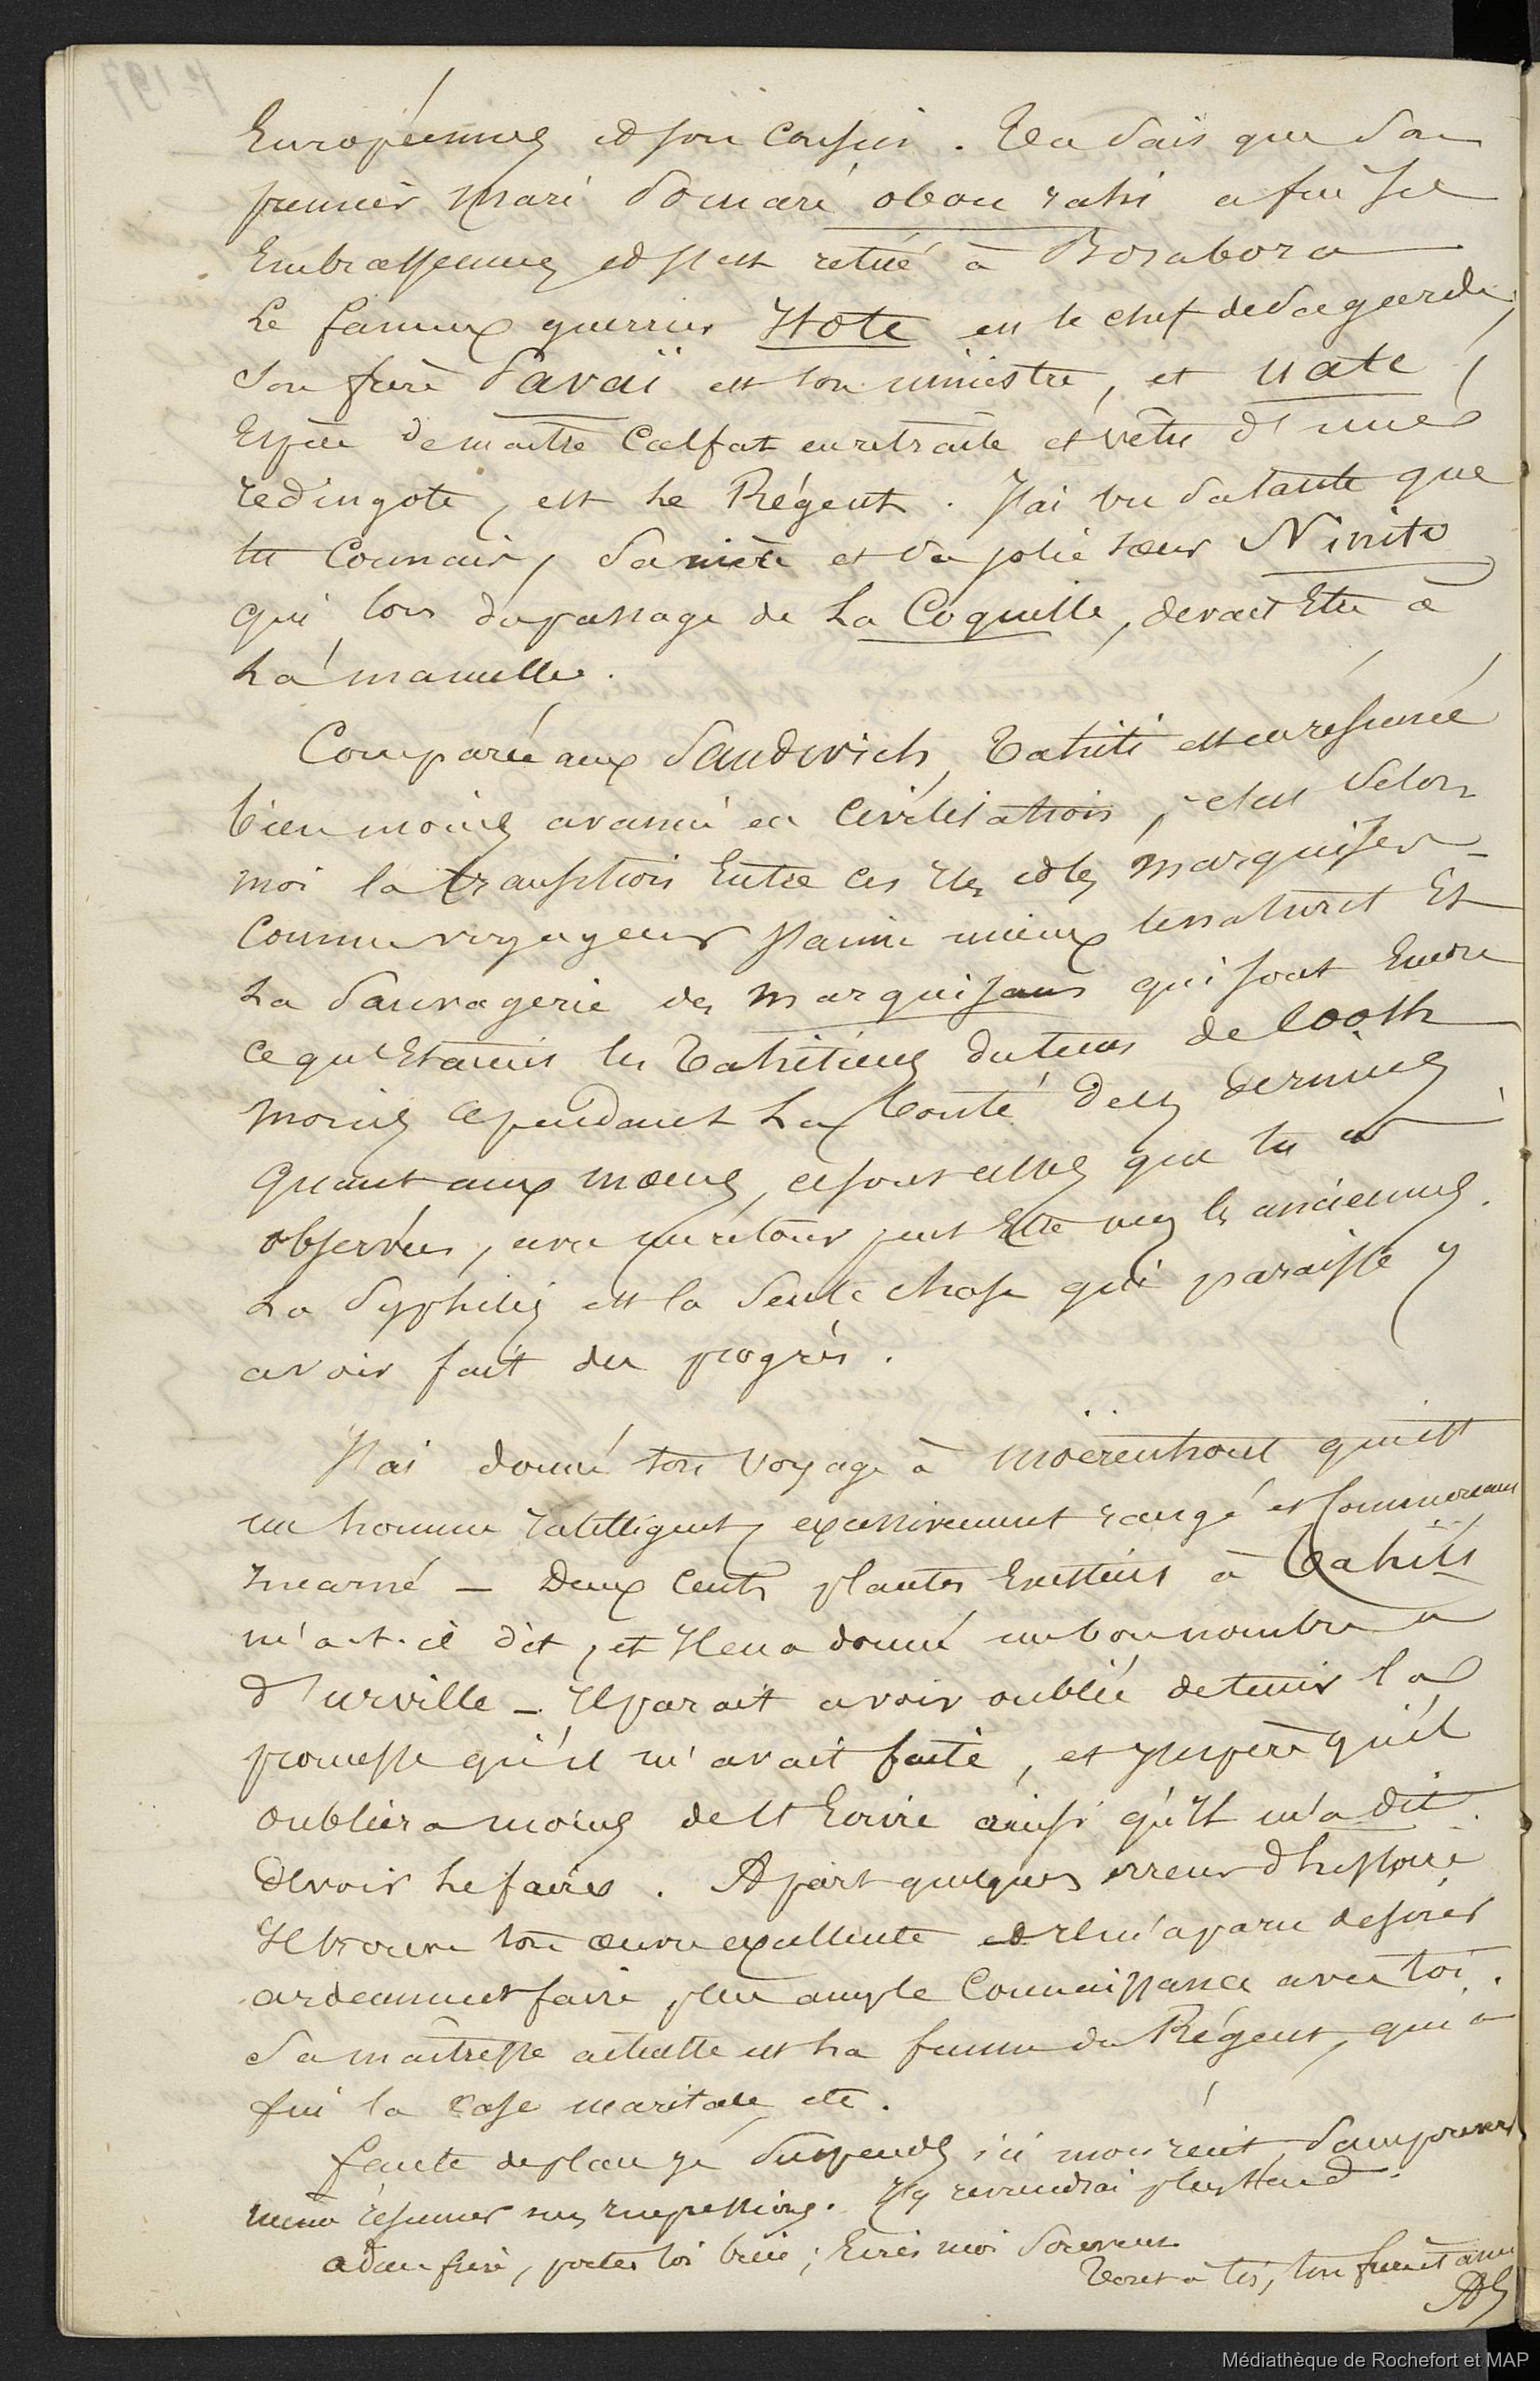 Européennes et son cousin. Tu sais que son
premier mari Pomaré abou rahi a fui ses
Embrassements et s'est retiré à Borabora
Le fameux guerrier Hote est le chef de sa garde,
son frère Pavaï est son ministre, et uate,
Espèce de maître Calfat en retraite et vêtu d'une
redingote, est le Régent. J'ai vu sa tante que
tu connais, sa mère et sa jolie sœur Ninito
qui lors du passage de La Coquille, devait Etre à
La mamelle.
Comparée aux Sandwich, Tahiti est en résumé
bien moins avancé en Civilisation, c'est selon
moi la transition Entre ces Iles et les marquises -
Comme voyageur j'aime mieux le naturel Et
La Sauvagerie des marquisans qui sont Encore
ce qu'Etaient les Tahitiens du tems de Cook
moins cependant La bonté de ces derniers
Quant aux mœurs, ce sont celles que tu as
observées, avec un retour peut Etre vers les anciennes.
La Syphilis est la Seule chose qui paraisse y
avoir fait du progrès.
J'ai donné ton voyage à Moërenhout qui est
un homme Intelligent, excessivement rangé et Commerçant
Incarné - Deux Cents plantes Existent à Tahiti
m'a-t-il dit, et Il en a donné un bon nombre a
d'urville - Il parait avoir oublié de tenir la
promesse qu'il m'avait faite, et j'espère qu'il
oubliera moins de t'Ecrire ainsi qu'Il m'a dit
devoir le faire. A part quelques erreurs d'histoire
Il trouve ton œuvre excellente et Il m'a paru desirer
ardemment faire plus ample Connaissance avec toi.
Sa maîtresse actuelle est La femme du Régent, qui a
fui la case maritale, etc.
faute de place je Suspends ici mon récit, Sans pouvoir
même résumer mes Impressions. J'y reviendrai plus tard.
adieu frère, portes toi bien; Ecris moi Souvent
Tout à toi, ton frère et ami